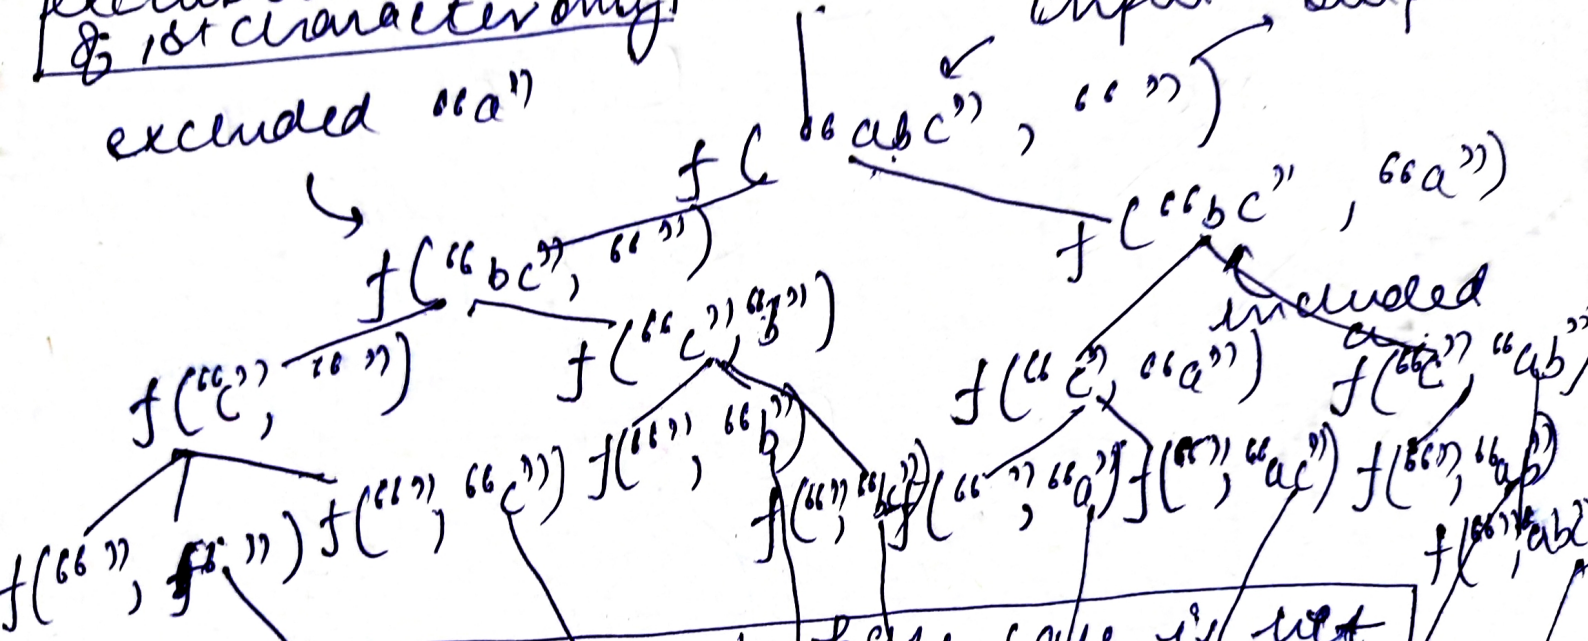 of 1st character only!
excluded "a"
f("abc", "")
f("bc", "")
f("bc", "a")
included
a
f("c", "")
f("c", "b")
f("c", "a")
f("c", "ab")
f("", "")
f("", "c")
f("", "b")
f("", "bc")
f("", "a")
f("", "ac")
f("", "ab")
f("", "abc"